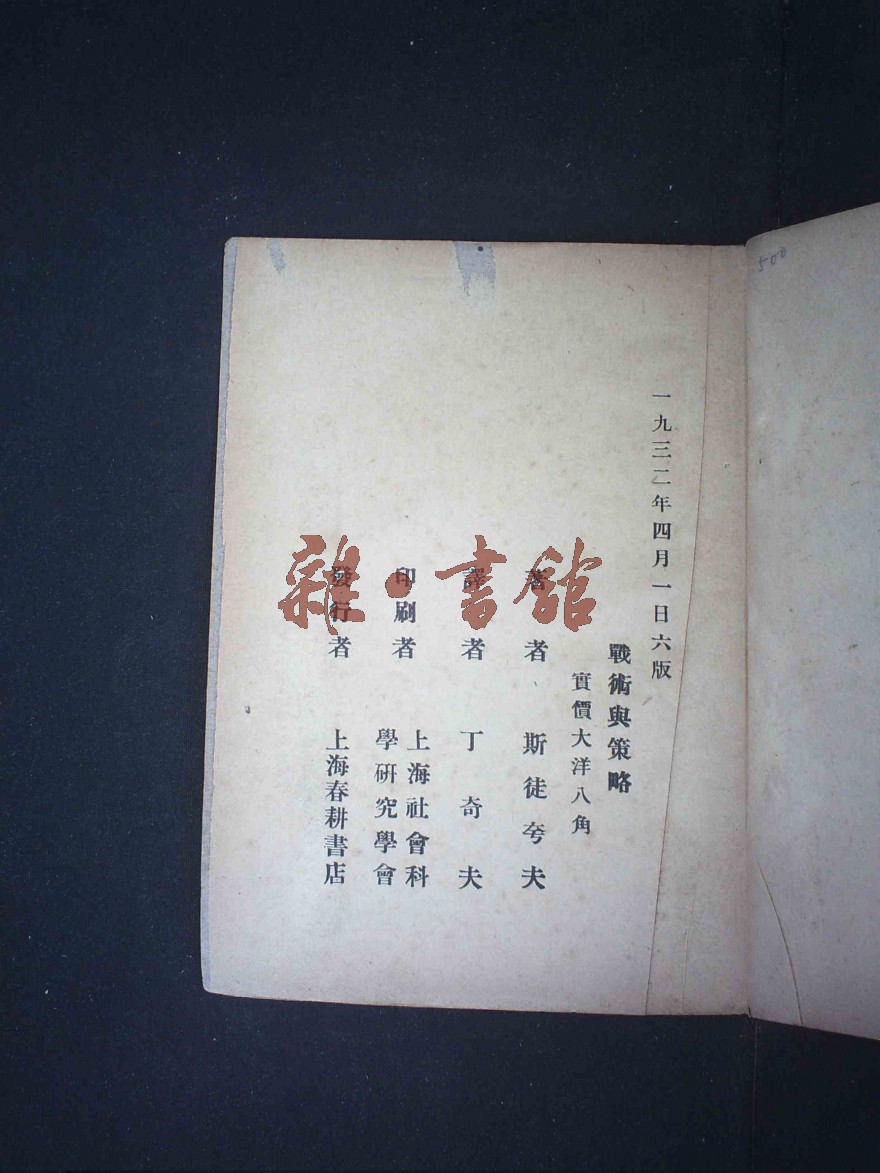 一九三二年四月一日六版
戰術與策略
實價大洋八角
著者 斯徒夸夫
譯者 丁奇夫
印刷者 上海社會科
學研究學會
發行者 上海春耕書店
雜·書館
500